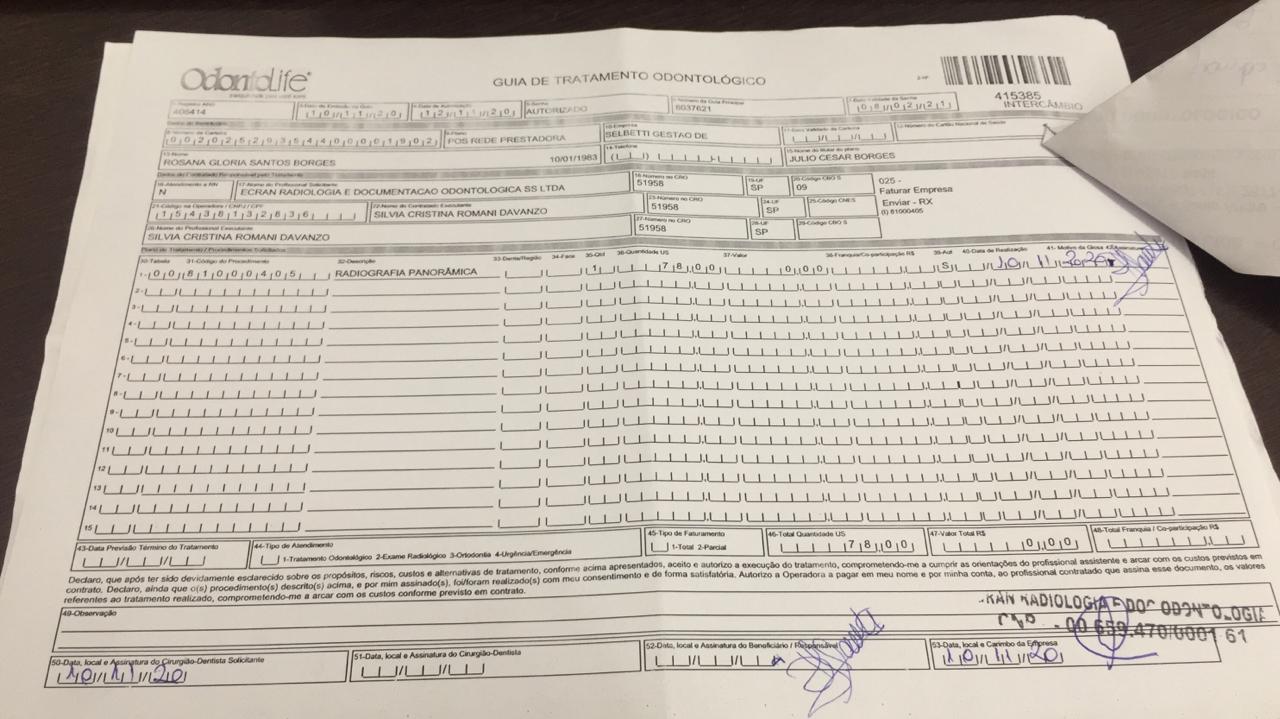 OdontoLife
GUIA DE TRATAMENTO ODONTOLÓGICO
415385
INTERCÂMBIO
406414
10/11/20
12/11/20
AUTORIZADO
6037621
08/02/21
8-Número da Carteira
00202529354400001902
9-Plano
POS REDE PRESTADORA
10-Empresa
SELBETTI GESTAO DE
13-Nome
ROSANA GLORIA SANTOS BORGES 10/01/1983
14-Telefone
JULIO CESAR BORGES
Dados do Contratado Responsável pelo Tratamento
16-Atendimento a RN
N
17-Nome do Profissional Solicitante
ECRAN RADIOLOGIA E DOCUMENTACAO ODONTOLOGICA SS LTDA
18-Número no CRO
51958
19-UF
SP
20-Código CBO S
09
025 -
Faturar Empresa
Enviar - RX
(I) 81000405
21-Código na Operadora / CNPJ / CPF
15438132836
22-Nome do Contratado Executante
SILVIA CRISTINA ROMANI DAVANZO
23-Número no CRO
51958
24-UF
SP
25-Código CNES
26-Nome do Profissional Executante
SILVIA CRISTINA ROMANI DAVANZO
27-Número no CRO
51958
28-UF
SP
29-Código CBO S
Plano de Tratamento / Procedimentos Solicitados
30-Tabela 31-Código do Procedimento 32-Descrição 33-Dente/Região 34-Face 35-Qtd 36-Quantidade US 37-Valor 38-Franquia/Co-participação R$ 39-Aut 40-Data de Realização 41- Motivo da Glosa
1- 00 81000405 RADIOGRAFIA PANORÂMICA 1 78,00 0,00 S 10 11 2020
2-
3-
4-
5-
6-
7-
8-
9-
10
11
12
13
14
15
43-Data Previsão Término do Tratamento
44-Tipo de Atendimento
1-Tratamento Odontológico 2-Exame Radiológico 3-Ortodontia 4-Urgência/Emergência
45-Tipo de Faturamento
1-Total 2-Parcial
46-Total Quantidade US
78,00
47-Valor Total R$
0,00
48-Total Franquia / Co-participação R$
Declaro, que após ter sido devidamente esclarecido sobre os propósitos, riscos, custos e alternativas de tratamento, conforme acima apresentados, aceito e autorizo a execução do tratamento, comprometendo-me a cumprir as orientações do profissional assistente e arcar com os custos previstos em
contrato. Declaro, ainda que o(s) procedimento(s) descrito(s) acima, e por mim assinado(s), foi/foram realizado(s) com meu consentimento e de forma satisfatória. Autorizo a Operadora a pagar em meu nome e por minha conta, ao profissional contratado que assina esse documento, os valores
referentes ao tratamento realizado, comprometendo-me a arcar com os custos conforme previsto em contrato.
49-Observação
RADIOLOGIA E DOC ODONTOLOGIA
00 659.470/0001 61
50-Data, local e Assinatura do Cirurgião-Dentista Solicitante
10/11/20
51-Data, local e Assinatura do Cirurgião-Dentista
52-Data, local e Assinatura do Beneficiário / Responsável
53-Data, local e Carimbo da Empresa
10/11/20